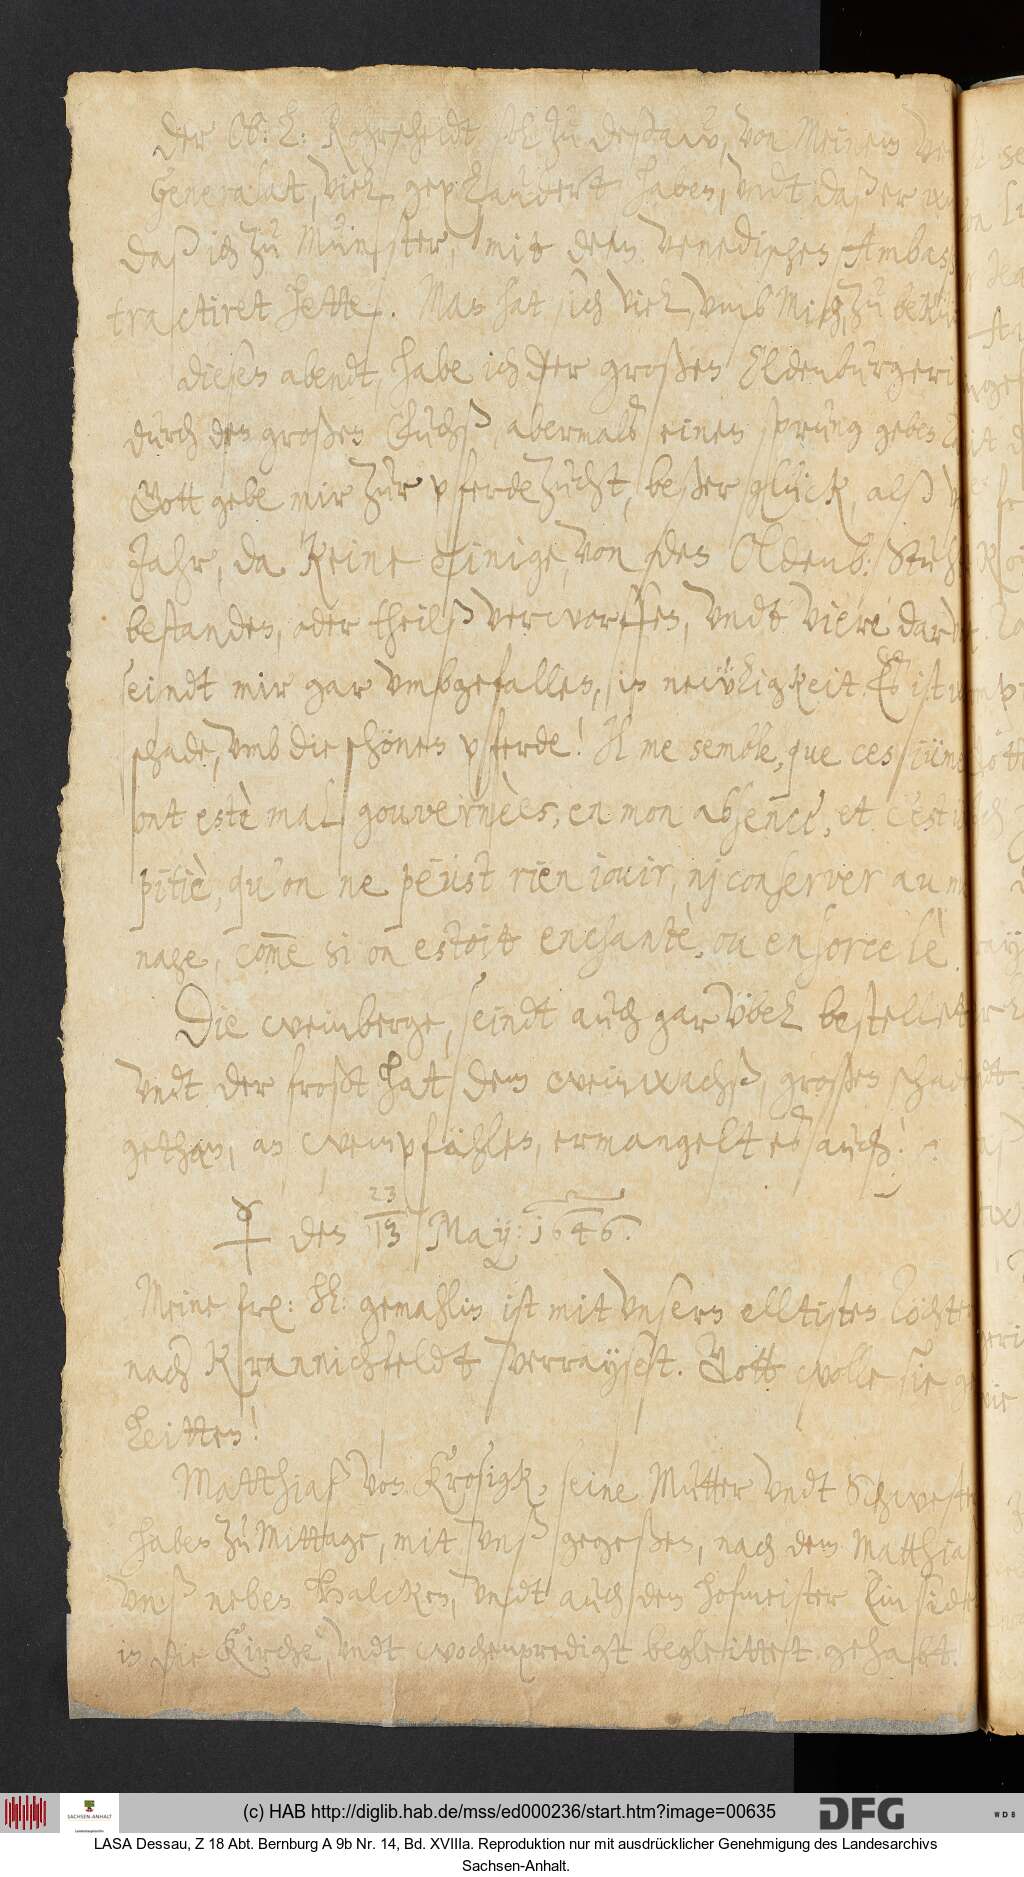 Der Ob: L: Rohrscheidt soll zu Deßaw, von Meinem
Generalat, viel geplaudert haben, vndt daß er
daß ich zu Münster, mit dem Venedischen Ambass
tractiret hette. Man hat sich viel vmb Mich, zu
diesen abendt, habe ich der großen Oldenburgeri
durch den großen Fuchß, abermalß einen sprung geben
Gott gebe mir zur pferdezucht, beßer glück, alß
Jahr, da keine einige, von den Oldenb: Stuh
bestanden, oder theilß verworffen, vndt viere dar
seindt mir gar vmbgefallen, in newligkeit. Es ist
schade, vmb die schönen pferde! Il me semble, que ces jum
ont estè mal gouvernèes, en mon absence, et c'est
pitiè, qu'on ne peust rien jouir, nj conserver au m
nage, com̄e si on estoit enchantè, ou ensorcelè.
Die weinberge, seindt auch gar vbel bestellet
vndt der frost hat dem weinwachß, großen schad
gethan, an weinpfählen, ermangelt es auch! ~
☿ den 23 / 13 May: 1646.
Meine fr: h: gemahlin ist mit vnsern elltisten Töchte
nach Krannichfeldt verrayset. Gott wolle sie
leitten!
Matthiaß von Krosigk, seine Mutter vndt Schweste
haben zu Mittage, mit vnß gegeßen, nach dem Matthia
vnß neben Halcken, vndt auch den hofmeister Einside
in die Kirche, vndt wochenpredigt begleittet gehabt.
(c) HAB http://diglib.hab.de/mss/ed000236/start.htm?image=00635
SACHSEN-ANHALT
DFG
WDB
LASA Dessau, Z 18 Abt. Bernburg A 9b Nr. 14, Bd. XVIIIa. Reproduktion nur mit ausdrücklicher Genehmigung des Landesarchivs
Sachsen-Anhalt.